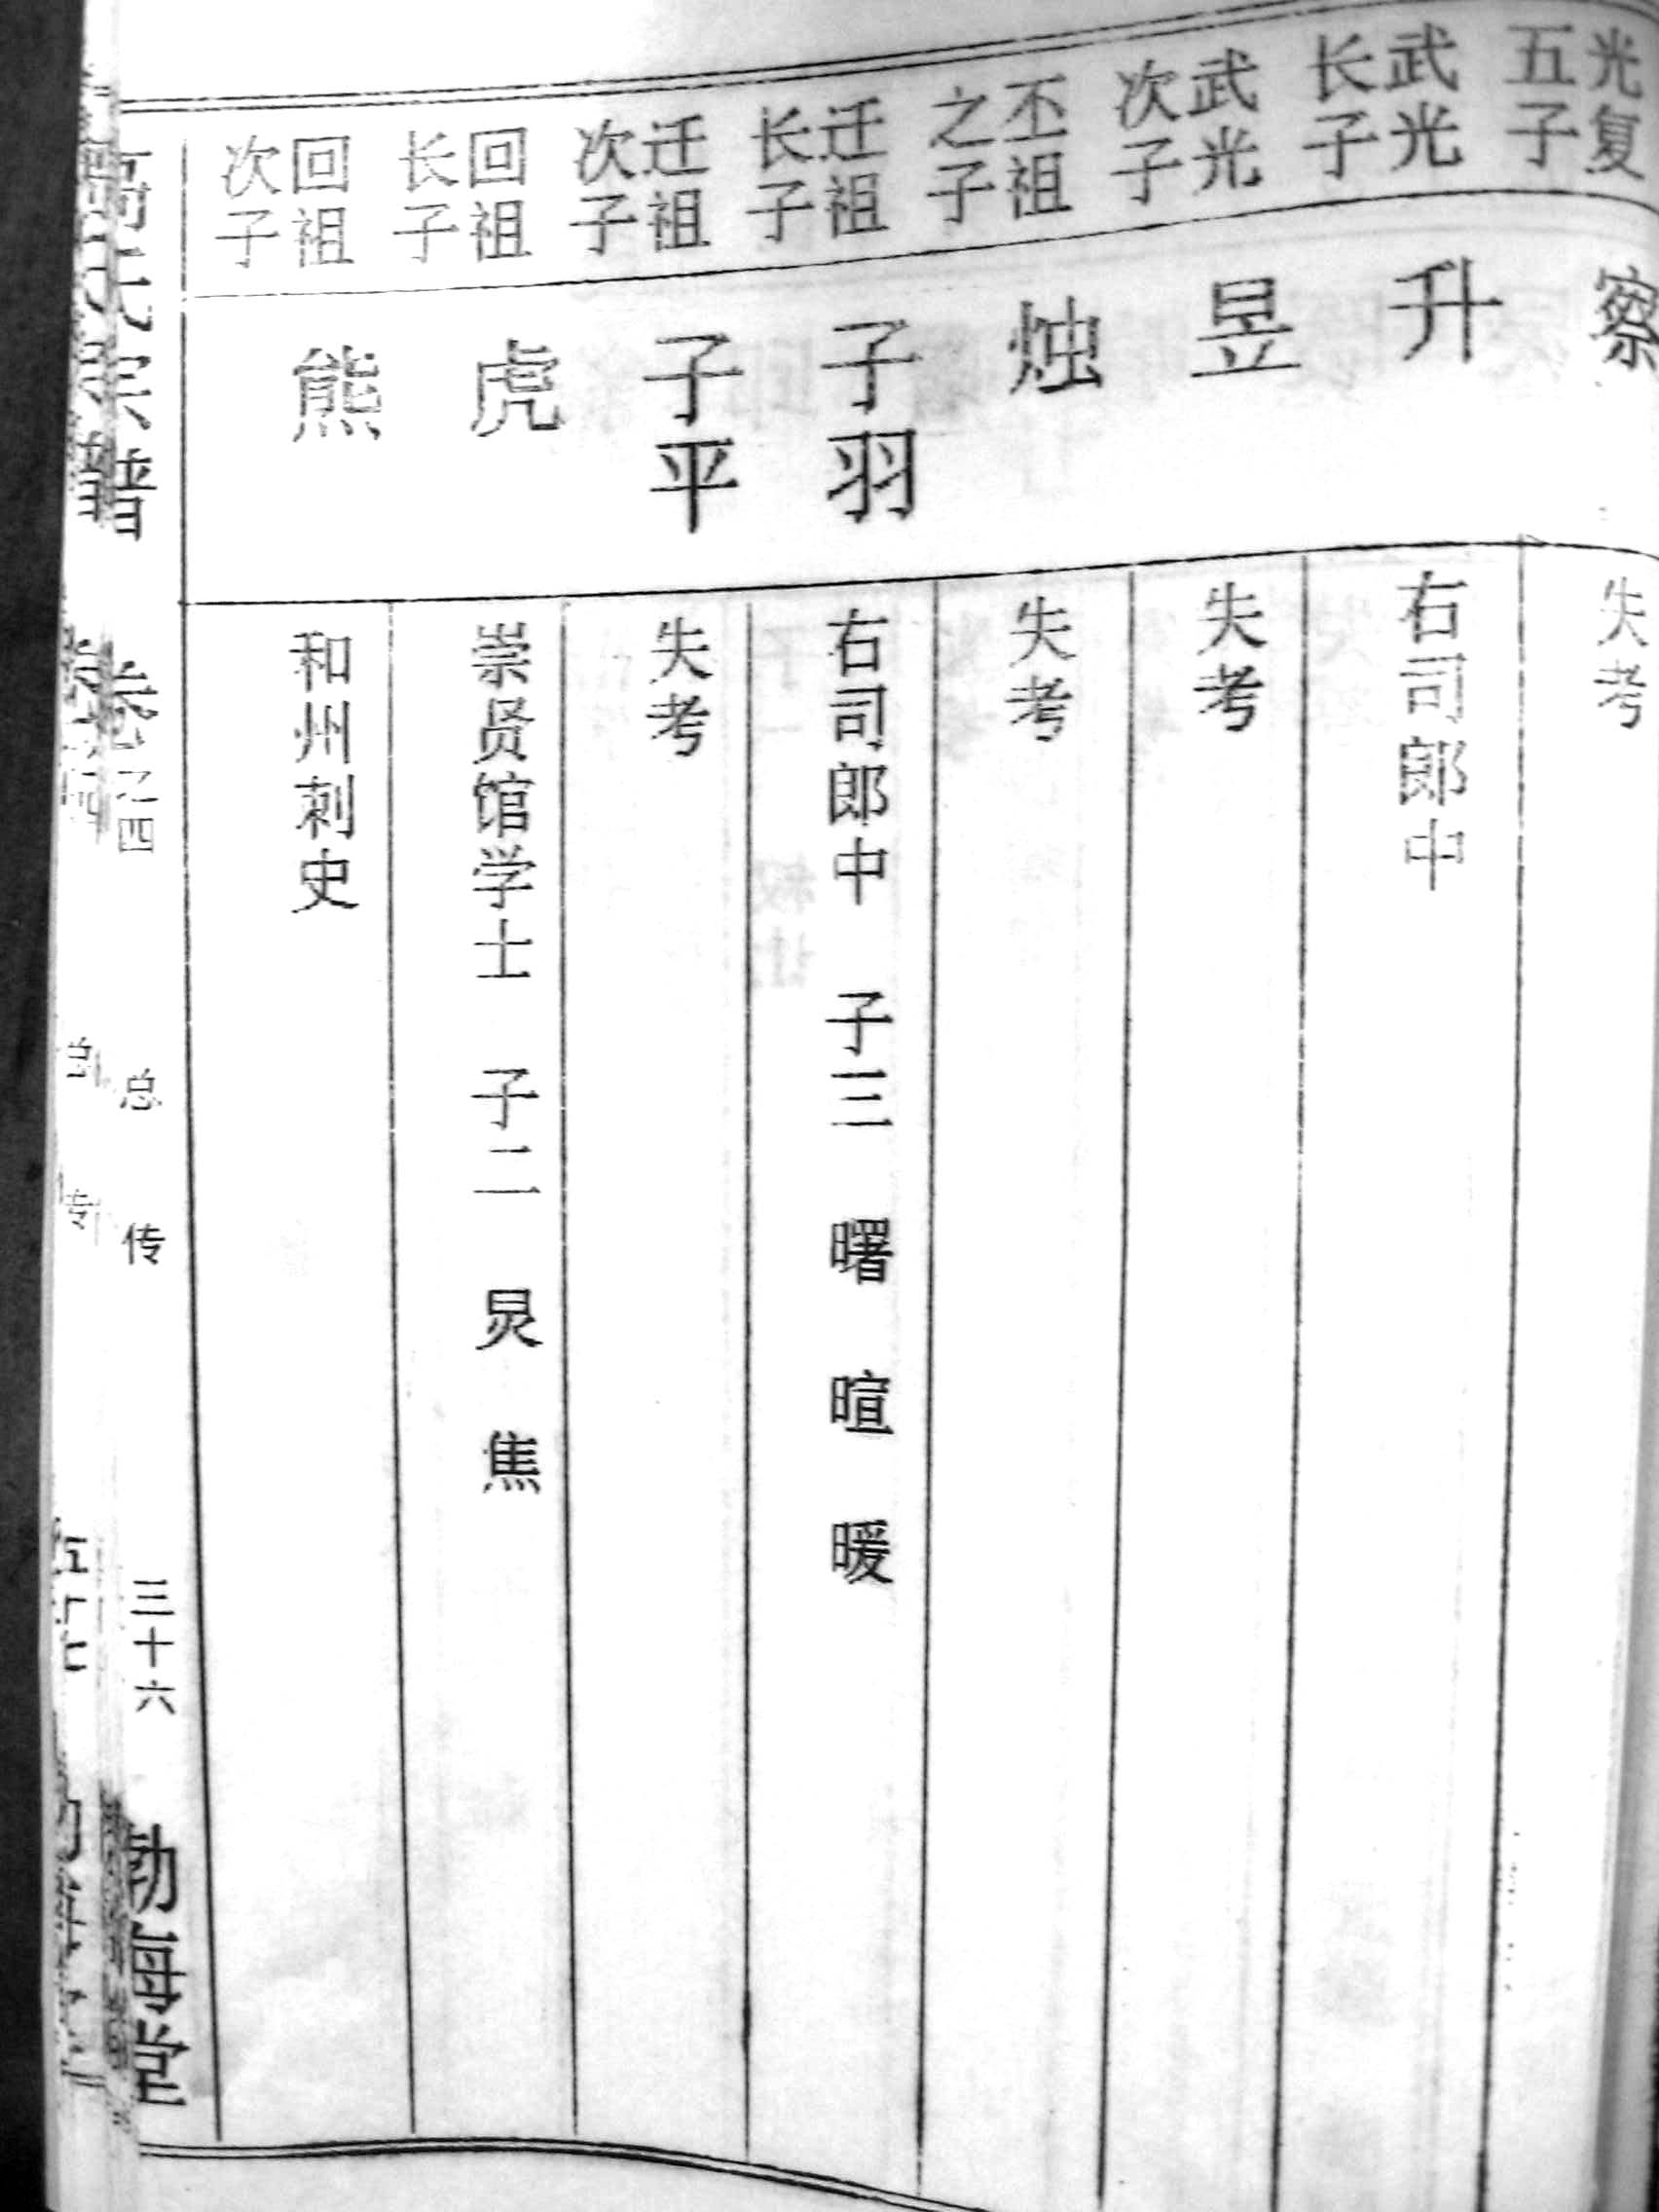 光复
五子
察
失考
武光
长子
升
右司郎中
武光
次子
昱
失考
丕祖
之子
烛
失考
迁祖
长子
子羽
右司郎中 子三 曙 暄 暖
迁祖
次子
子平
失考
回祖
长子
虎
崇贤馆学士 子二 炅 焦
回祖
次子
熊
和州刺史
氏宗谱 卷之四 总传 三十六 勃海堂